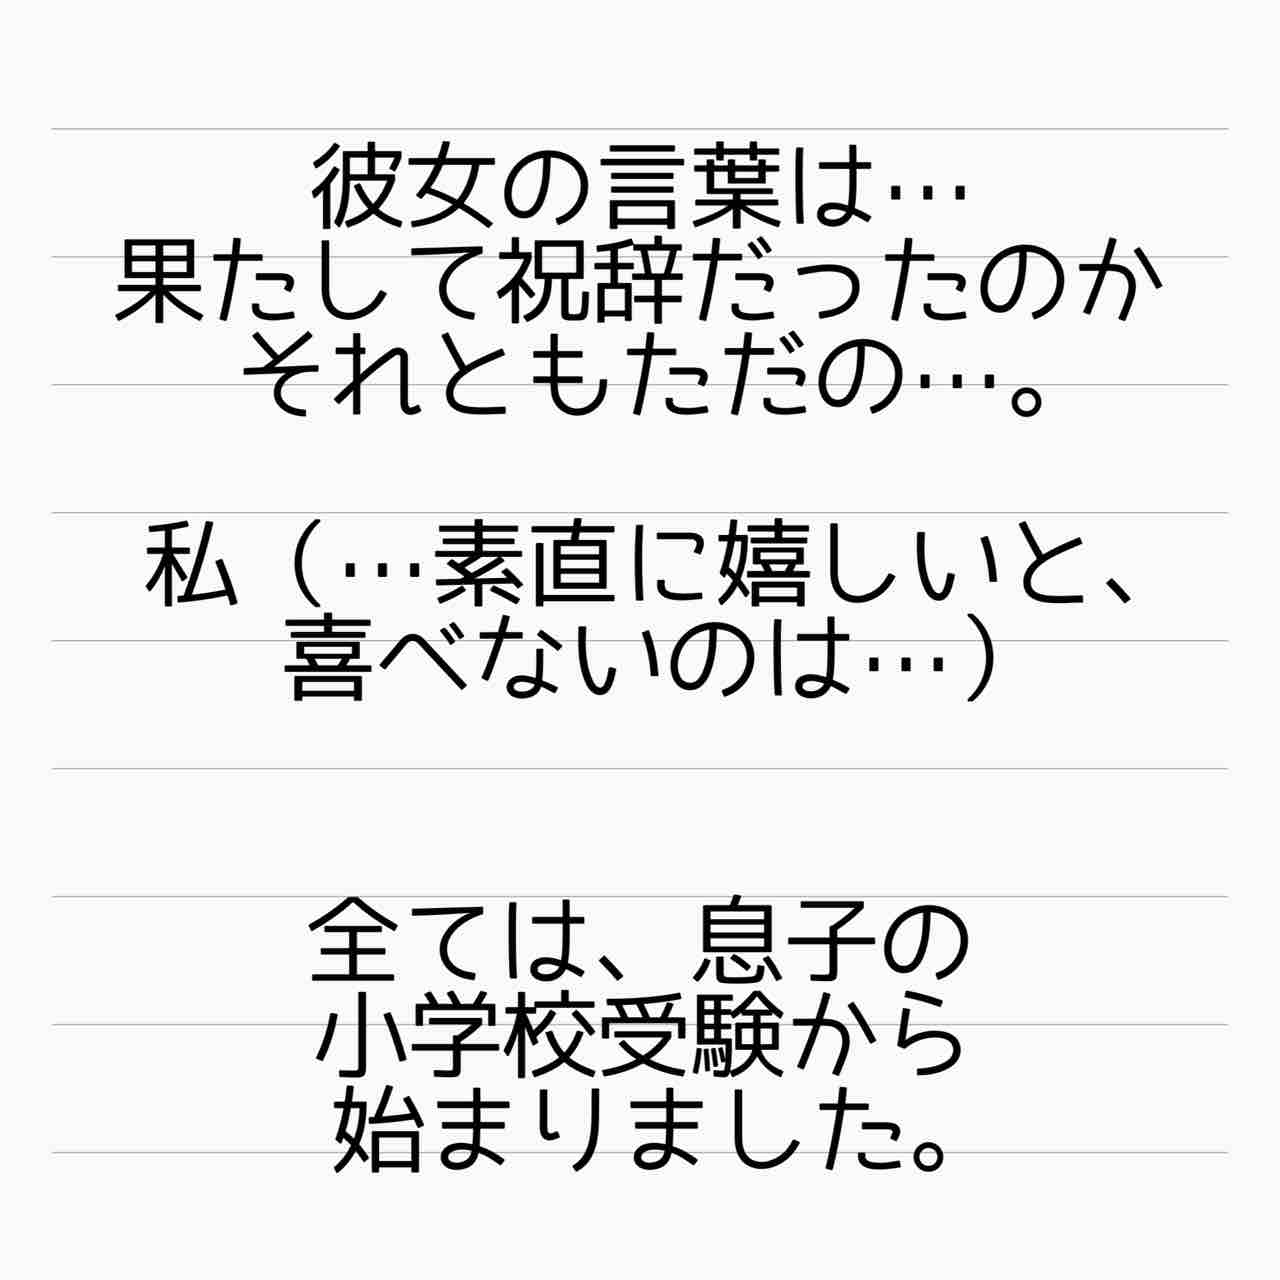 彼女の言葉は…
果たして祝辞だったのか
それともただの…。
私（…素直に嬉しいと、
喜べないのは…）
全ては、息子の
小学校受験から
始まりました。